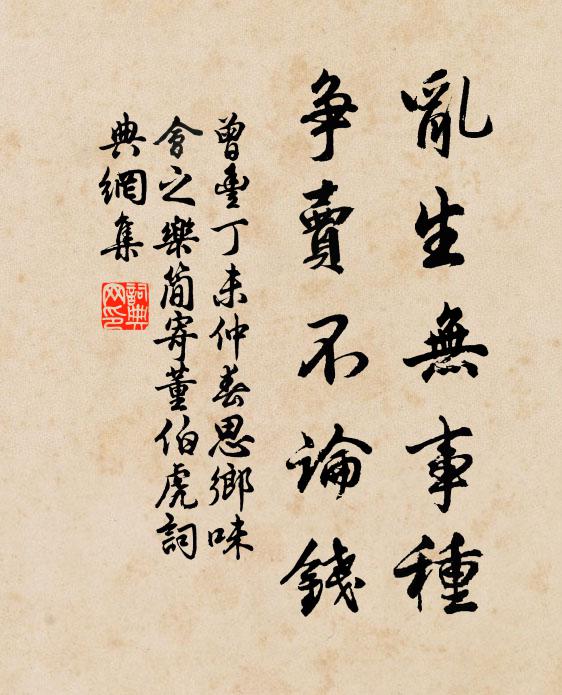 亂生無事種
爭賣不論錢
曾豐丁未仲春思鄉味
會之樂簡寄董伯虎詞
典網集
詞典网印